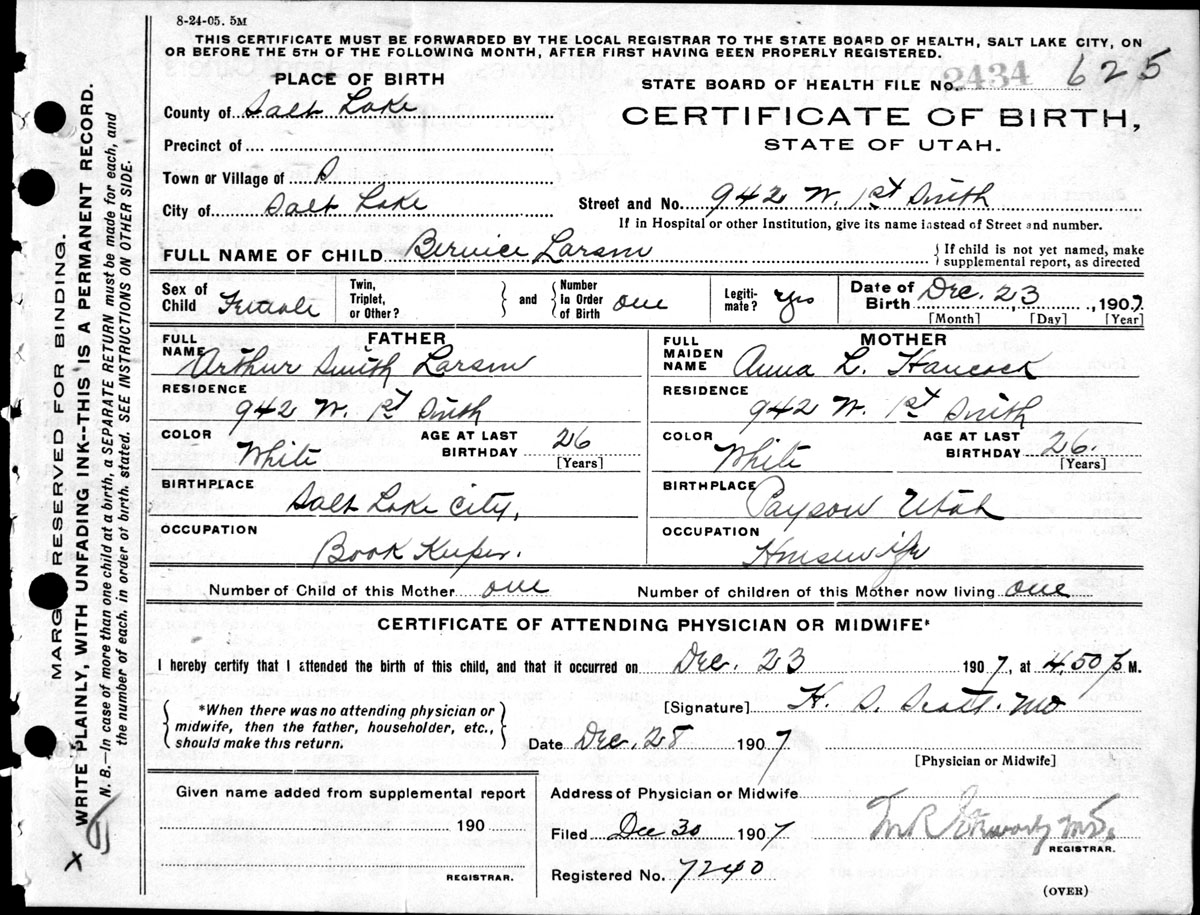 8-24-05. 5M
THIS CERTIFICATE MUST BE FORWARDED BY THE LOCAL REGISTRAR TO THE STATE BOARD OF HEALTH, SALT LAKE CITY, ON
OR BEFORE THE 5TH OF THE FOLLOWING MONTH, AFTER FIRST HAVING BEEN PROPERLY REGISTERED.
PLACE OF BIRTH
County of Salt Lake
Precinct of
Town or Village of S
City of Salt Lake
STATE BOARD OF HEALTH FILE No. 2434 625
CERTIFICATE OF BIRTH,
STATE OF UTAH.
Street and No. 942 W. 1st South
If in Hospital or other Institution, give its name instead of Street and number.
FULL NAME OF CHILD Bernice Larson
{ If child is not yet named, make
supplemental report, as directed
Sex of Child Female
Twin, Triplet, or Other? } and { Number In Order of Birth one
Legitimate? yes
Date of Birth Dec. 23, 1907
[Month] [Day] [Year]
FATHER
FULL NAME Arthur Smith Larson
RESIDENCE
942 W. 1st South
COLOR White AGE AT LAST BIRTHDAY 26
[Years]
BIRTHPLACE
Salt Lake City,
OCCUPATION
Book Keeper.
MOTHER
FULL MAIDEN NAME Anna L. Hancock
RESIDENCE
942 W. 1st South
COLOR White AGE AT LAST BIRTHDAY 26.
[Years]
BIRTHPLACE
Payson Utah
OCCUPATION
Housewife
Number of Child of this Mother one Number of children of this Mother now living one
CERTIFICATE OF ATTENDING PHYSICIAN OR MIDWIFE*
I hereby certify that I attended the birth of this child, and that it occurred on Dec. 23 1907, at 4.50 P M.
{ *When there was no attending physician or
midwife, then the father, householder, etc.,
should make this return. }
[Signature] H. S. Scott. MD
Date Dec. 28 1907
[Physician or Midwife]
Given name added from supplemental report
190
REGISTRAR.
Address of Physician or Midwife
Filed Dec 30 1907
M.D.
REGISTRAR.
Registered No. 7240
(OVER)
MARGIN RESERVED FOR BINDING.
WRITE PLAINLY, WITH UNFADING INK--THIS IS A PERMANENT RECORD.
N. B.—In case of more than one child at a birth, a SEPARATE RETURN must be made for each, and
the number of each, in order of birth, stated. SEE INSTRUCTIONS ON OTHER SIDE.
X